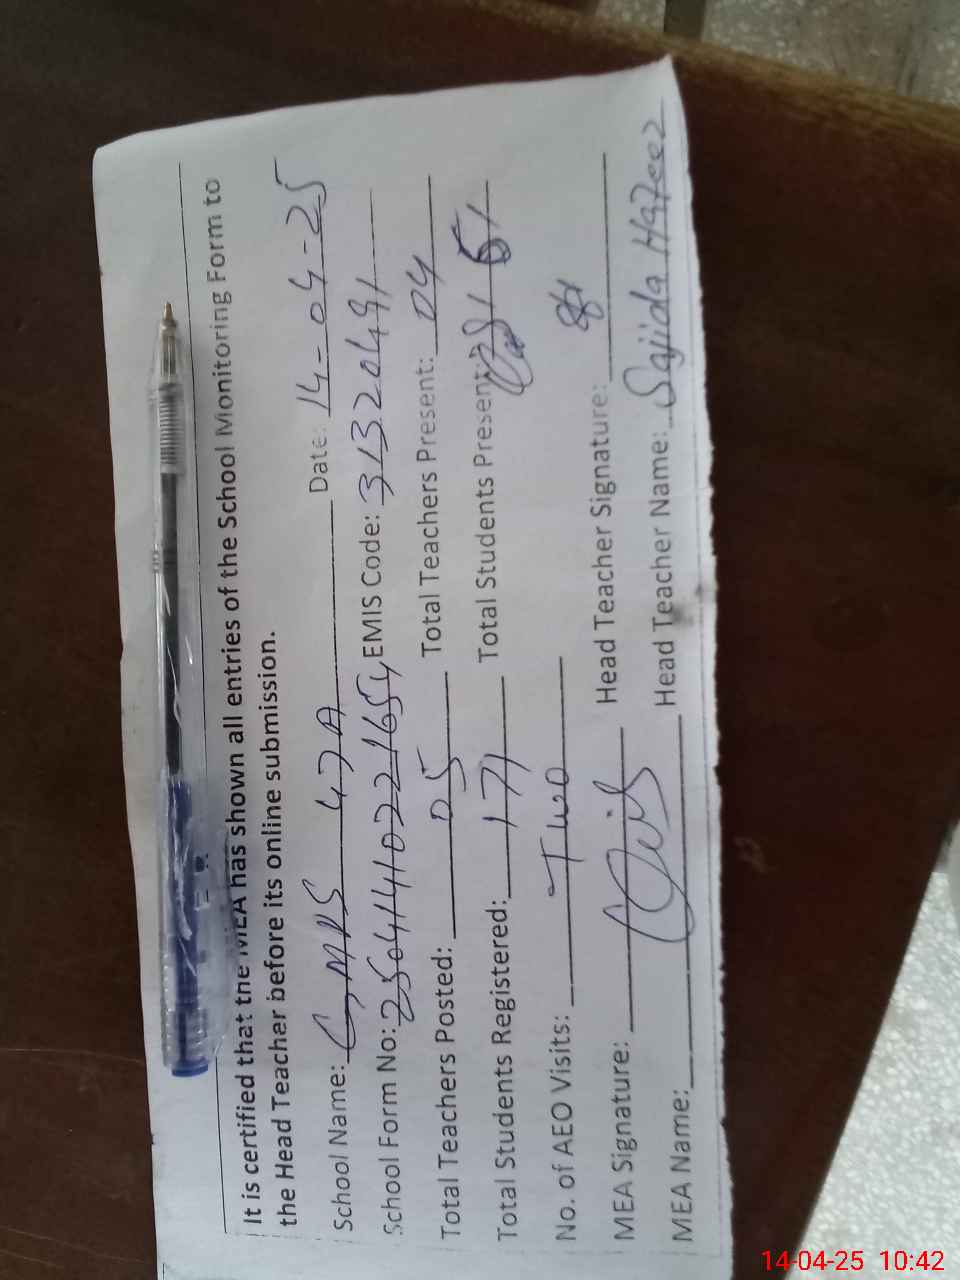 It is certified that the MEA has shown all entries of the School Monitoring Form to
the Head Teacher before its online submission.
School Name: GMPS 47A Date: 14-04-25
School Form No: 2504141022165y EMIS Code: 31320491
Total Teachers Posted: 05 Total Teachers Present: 04
Total Students Registered: 171 Total Students Present: 151
No. of AEO Visits: Two
MEA Signature: Head Teacher Signature:
MEA Name: Head Teacher Name: Sajida Hafeez
14-04-25 10:42